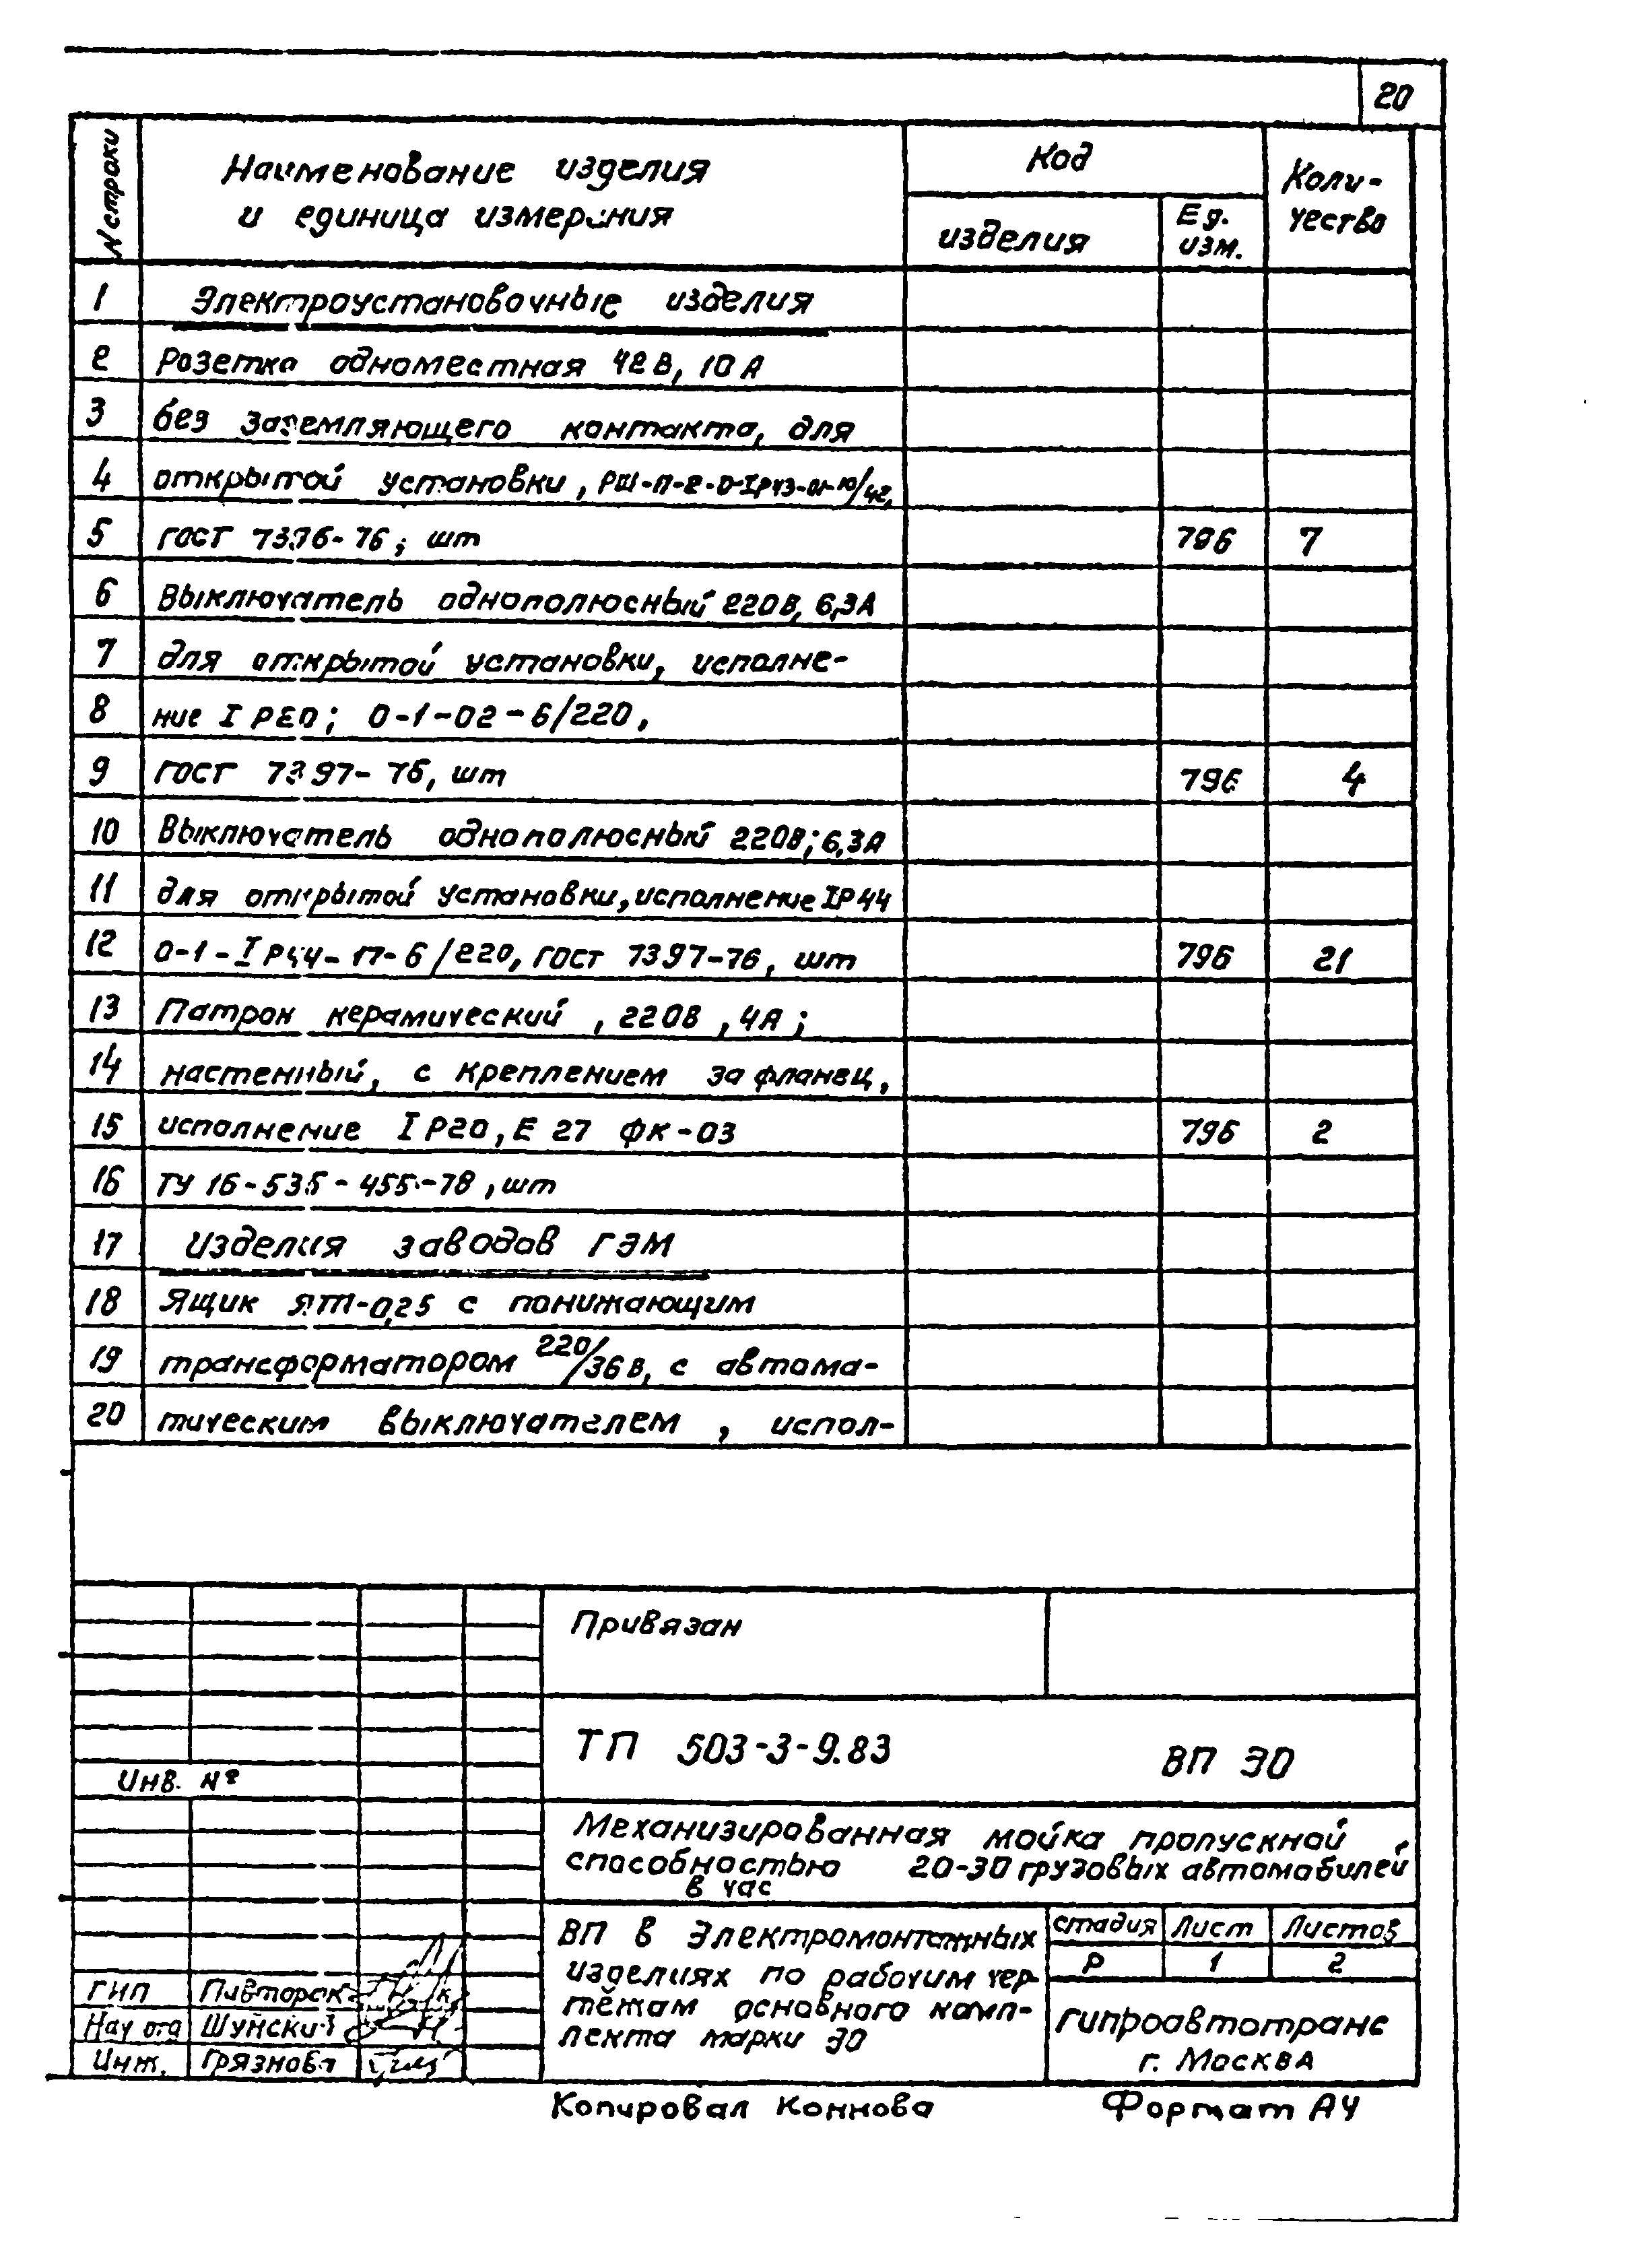 20
N строки
Наименование изделия
и единица измерения
Код
изделия
Ед.
изм.
Коли-
чество
1 Электроустановочные изделия
2 Розетка одноместная 42В, 10А
3 без заземляющего контакта, для
4 открытой установки, РШ-П-2-0-IP43-01-10/42,
5 ГОСТ 7396-76; шт 796 7
6 Выключатель однополюсный 220В, 6,3А
7 для открытой установки, исполне-
8 ние IP20; 0-1-02-6/220,
9 ГОСТ 7397-76, шт 796 4
10 Выключатель однополюсный 220В; 6,3А
11 для открытой установки, исполнение IP44
12 0-1-IP44-17-6/220, ГОСТ 7397-76, шт 796 21
13 Патрон керамический, 220В, 4А;
14 настенный, с креплением за фланец,
15 исполнение IP20, Е27 ФК-03 796 2
16 ТУ 16-535-455-78, шт
17 Изделия заводов ГЭМ
18 Ящик ЯТП-0,25 с понижающим
19 трансформатором 220/36В, с автома-
20 тическим выключателем, испол-
Привязан
Инв. №
ТП 503-3-9.83 ВП ЭО
Механизированная мойка пропускной
способностью 20-30 грузовых автомобилей
в час
ВП в Электромонтажных
изделиях по рабочим чер-
тёжам основного комп-
лекта марки ЭО
стадия Лист Листов
Р 1 2
Гипроавтотранс
г. Москва
ГИП Пивторак
Нач отд Шуйский
Инж. Грязнова
Копировал Коннова Формат А4